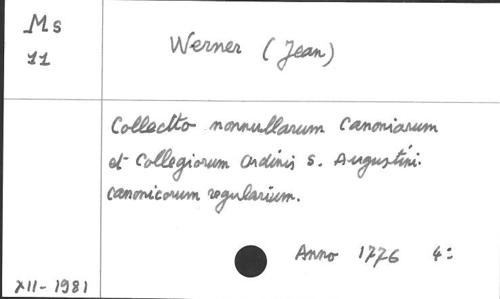 Ms
11
Werner (Jean)
Collectto nonnullarum Canoniarum
et Collegiorum Ordinis S. Augustini.
Canonicorum regularium.
Anno 1776 4:
XII-1981